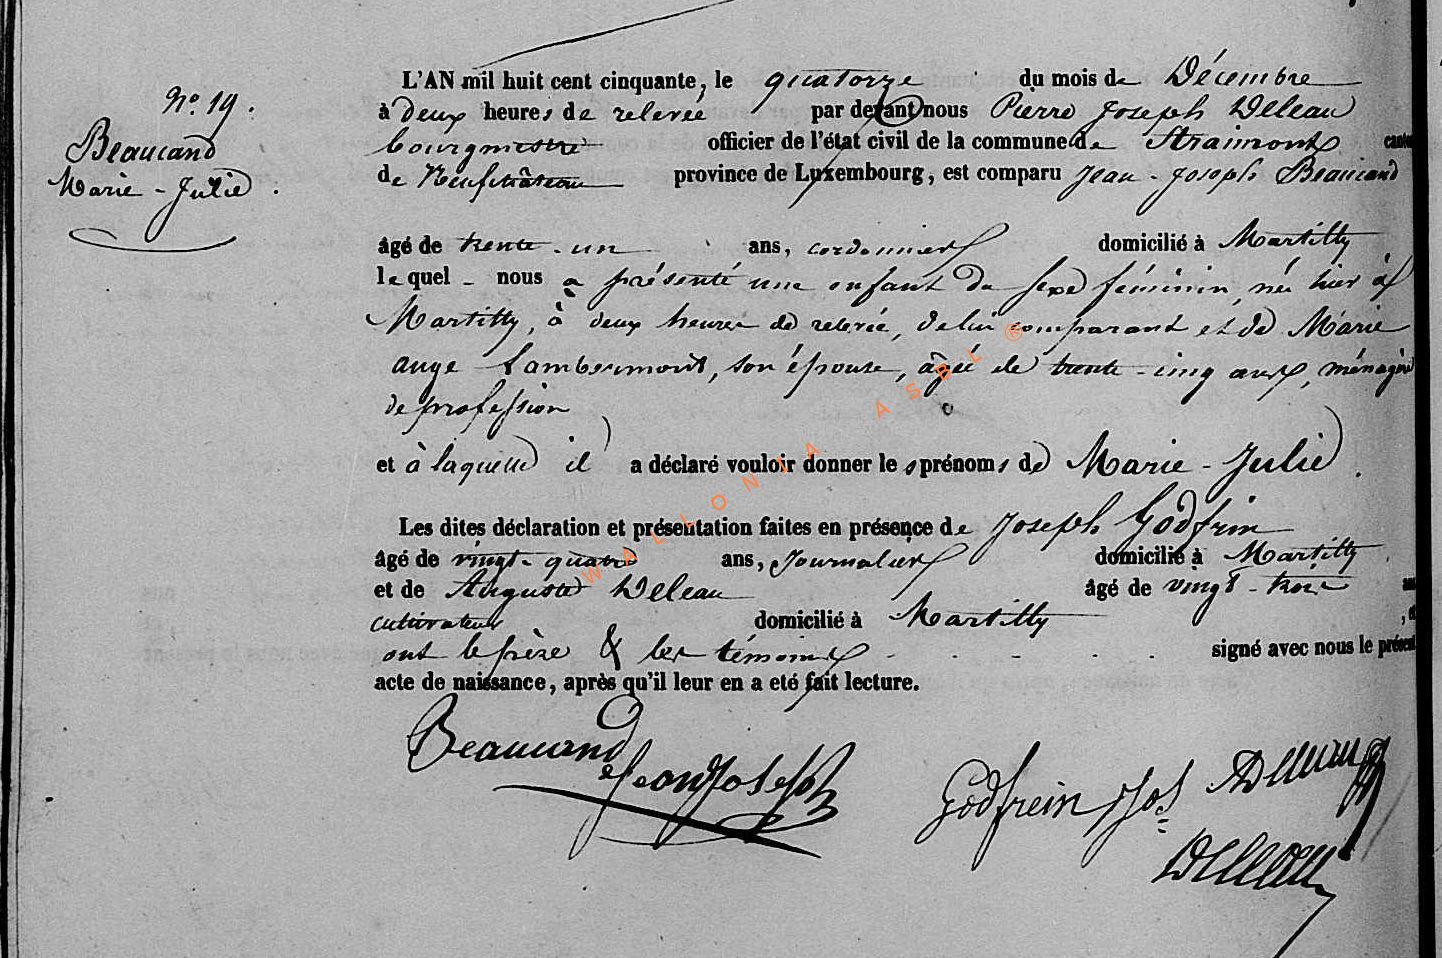 N.o 19.
Beaucand
Marie - Julie.
L'AN mil huit cent cinquante, le quatorze du mois de Décembre
à deux heures de relevée par devant nous Pierre Joseph Deleau
bourgmestre officier de l'état civil de la commune de Straimont canton
de Neufchâteau province de Luxembourg, est comparu Jean - Joseph Beaucand
âgé de trente - un ans, cordonnier domicilié à Martilly
lequel - nous a présenté une enfant du sexe féminin, née hier à
Martilly, à deux heures de relevée, de lui comparant et de Marie
ange Lambermont, son épouse, âgée de trente - cinq ans, ménagère
de profession
et à laquelle il a déclaré vouloir donner les prénoms de Marie - Julie.
Les dites déclaration et présentation faites en présence de Joseph Godfrin
âgé de vingt - quatre ans, Journalier domicilié à Martilly
et de Auguste Deleau âgé de vingt - trois ans
cultivateur domicilié à Martilly, et
ont le père & les témoins signé avec nous le présent
acte de naissance, après qu'il leur en a eté fait lecture.
Beaucand
Jean Joseph
Godfrein Jos
ADeleau
Deleau
WALLONIA ASBL ®